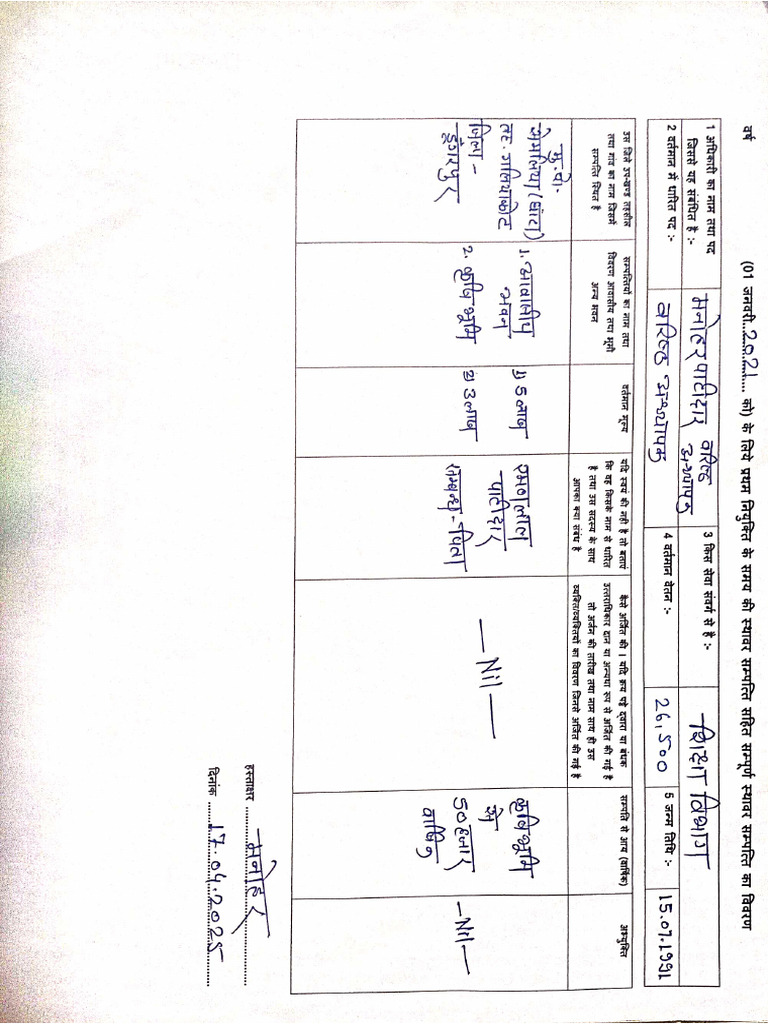 वर्ष (01 जनवरी...2021... को) के लिये प्रथम नियुक्ति के समय की स्थावर सम्पत्ति सहित सम्पूर्ण स्थावर सम्पत्ति का विवरण
1 अधिकारी का नाम तथा पद
जिससे यह संबंधित है :-
मनोहर पाटीदार वरिष्ठ
अध्यापक
3 किस सेवा संवर्ग से है :-
शिक्षा विभाग
2 वर्तमान में धारित पद :-
वरिष्ठ अध्यापक
4 वर्तमान वेतन :-
26,500
5 जन्म तिथि :-
15.07.1991
उस जिले उप-खण्ड तहसील
तथा गांव का नाम जिसमें
सम्पत्ति स्थित है
सम्पत्तियों का नाम तथा
विवरण आवासीय तथा भूमी
अन्य भवन
वर्तमान मूल्य
यदि स्वयं की नही है तो बताएं
कि वह किसके नाम से धारित
है तथा उस सदस्य के साथ
आपका क्या संबंध है
कैसे अर्जित की । यदि क्रय पट्टे द्वारा या बंधक
उत्तराधिकार दान या अन्यथा रुप से अर्जित की गई है
तो अर्जन की तारीख तथा नाम साथ ही उस
व्यक्ति/व्यक्तियों का विवरण जिनसे अर्जित की गई है
सम्पत्ति से आय (वार्षिक)
अभ्युक्ति
मु.पो.-
सेमलिया (घांटा)
तह. गलियाकोट
जिला -
डूँगरपुर
1. आवासीय
भवन
2. कृषि भूमि
1) 5 लाख
2) 3 लाख
रमणलाल
पाटीदार
सम्बन्ध - पिता
- Nil -
कृषि भूमि
से
50 हजार
वार्षिक
- Nil -
हस्ताक्षर ...मनोहर...
दिनांक ...17.04.2025...